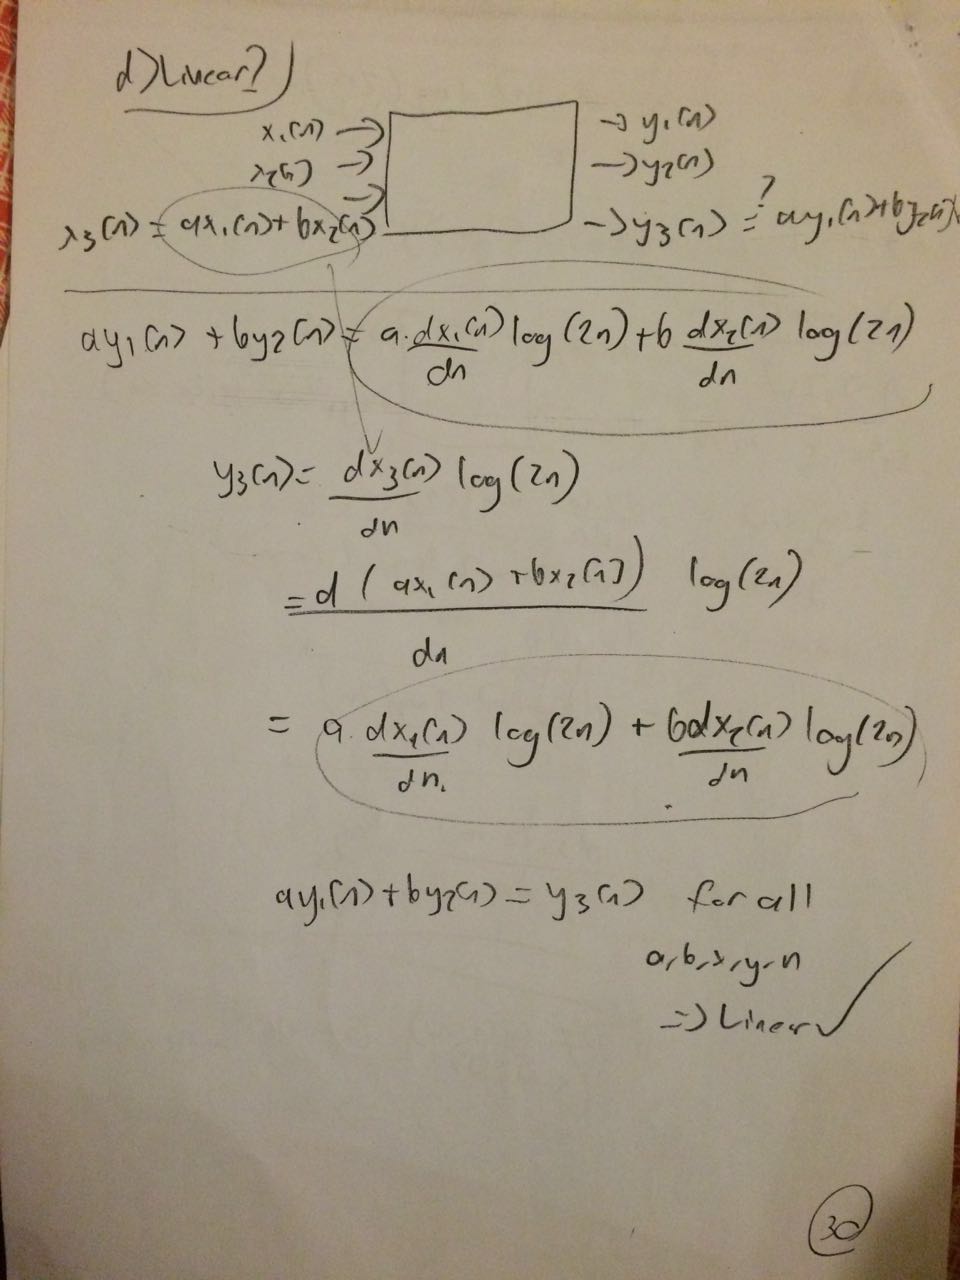 d) Linear?
x₁(n) → → y₁(n)
x₂(n) → → y₂(n)
x₃(n) = ax₁(n) + bx₂(n) → → y₃(n) =? ay₁(n) + by₂(n)
ay₁(n) + by₂(n) = a. dx₁(n)/dn log(2n) + b dx₂(n)/dn log(2n)
y₃(n) = dx₃(n)/dn log(2n)
= d(ax₁(n) + bx₂(n))/dn log(2n)
= a. dx₁(n)/dn. log(2n) + b dx₂(n)/dn log(2n)
ay₁(n) + by₂(n) = y₃(n) for all
a, b, x, y, n
=> Linear ✓
30